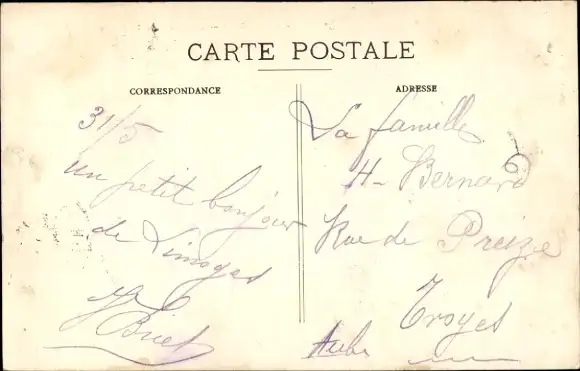 CARTE POSTALE
CORRESPONDANCE
31/5
un petit bonjour
de Limoges
Briet
ADRESSE
La famille
H- Bernard
Rue de Preize
Troyes
Aube